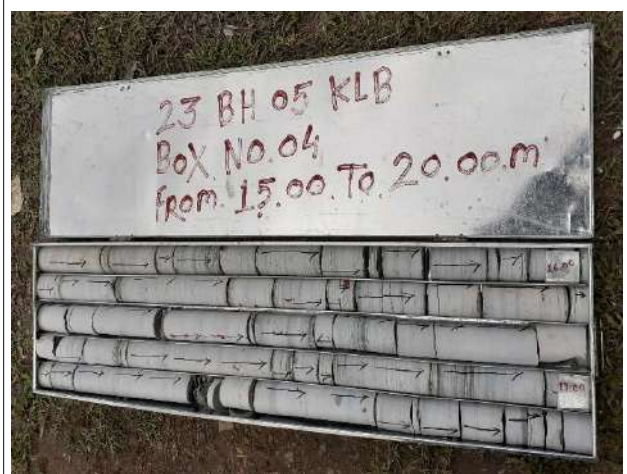 23 BH 05 KLB
BOX NO.04
FROM. 15.00. TO. 20.00.m
16.00